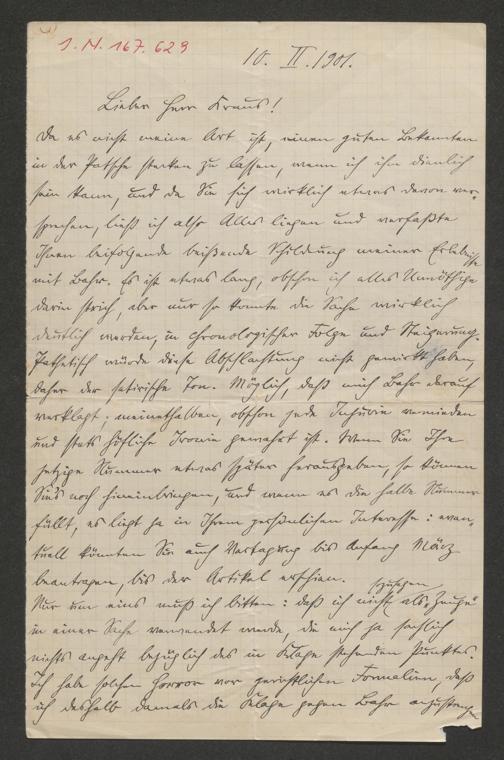 J. N. 167.629
10. II. 1901.
Lieber Herr Kraus!
Da es nicht meine Art ist, einen guten Bekannten
in der Patsche stecken zu lassen, wenn ich ihm dienlich
sein kann, und da Sie sich wirklich etwas davon ver-
sprechen, ließ ich also Alles liegen und verfaßte
Ihnen beifolgende beißende Schilderung meiner Erlebnisse
mit Bahr. Es ist etwas lang, obschon ich alles Unnöthige
darin strich, aber nur so konnte die Sache wirklich
deutlich werden, in chronologischer Folge und Steigerung.
Pathetisch würde diese Abschlachtung nicht gewirkt haben,
daher der satirische Ton. Möglich, daß mich Bahr darauf
verklagt; meinethalben, obschon jede Injurie vermieden
und stets höfliche Ironie gewahrt ist. Wenn Sie Ihre
jetzige Nummer etwas später herausgeben, so können
Sie's noch hineinbringen, und wenn es die halbe Nummer
füllt, es liegt ja in Ihrem persönlichen Interesse: even-
tuell könnten Sie auch Vertagung bis Anfang März
beantragen, bis der Artikel erschien.
Nur um eins muß ich bitten: daß ich nicht als "Zeuge"
in einer Sache verwendet werde, die mich ja sachlich
nichts angeht bezüglich des in Klage stehenden Punktes.
Ich habe solchen Horror vor gerichtlichen Formalien, daß
ich deshalb damals die Klage gegen Bahr